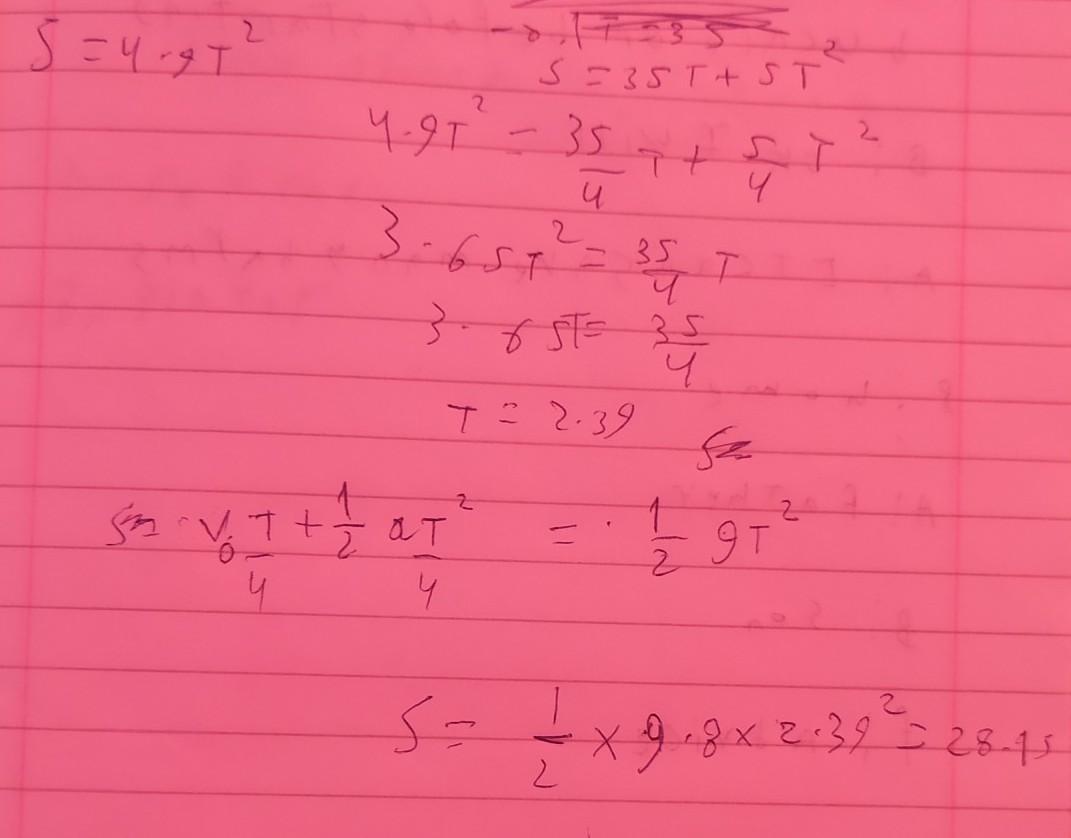 S = 4.9T²
S = 35T + 5T²
4.9T² = 35/4 T + 5/4 T²
3.65T² = 35/4 T
3.65T = 35/4
T = 2.39
V₀ T/4 + 1/2 aT²/4 = 1/2 gT²
S = 1/2 × 9.8 × 2.39² = 28.